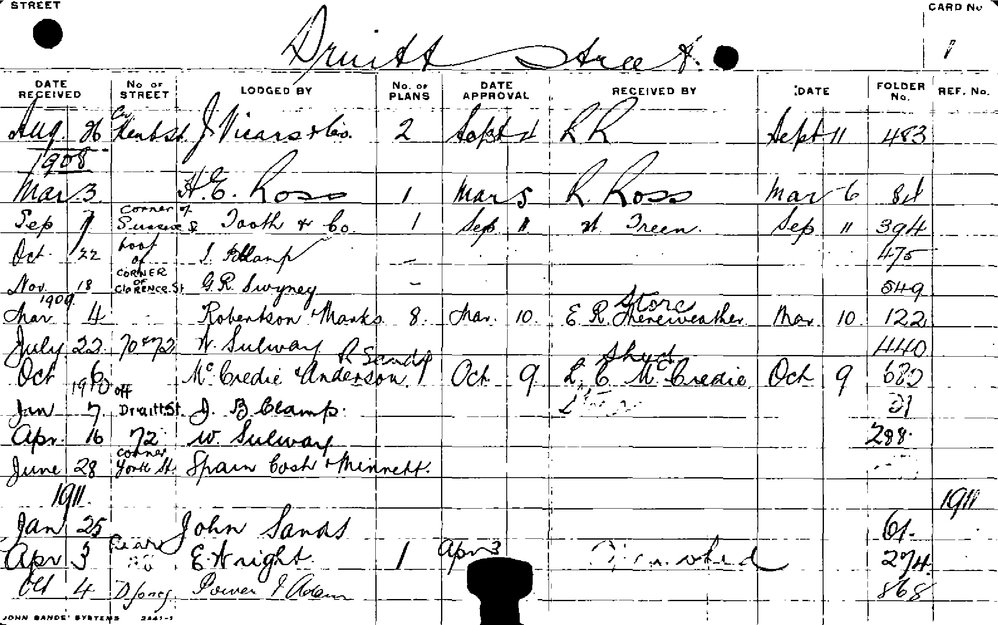 STREET CARD No
Druitt Street. 1
DATE RECEIVED No. OF STREET LODGED BY No. OF PLANS DATE APPROVAL RECEIVED BY DATE FOLDER No. REF. No.
Aug 26 Kent St J. Vicars & Co. 2 Sept 4 R R Sept 11 483
1908
Mar 3 H. E. Ross 1 Mar 5 R. Ross Mar 6 84
Sep 7 corner of Sussex St Tooth & Co. 1 Sep 11 Treen. Sep 11 394
Oct 22 J. B Clamp 475
Nov. 18 CORNER OF CLARENCE St G. R. Swyney 549
1909
Mar 4 Robertson & Marks 8. Mar. 10 E. R. Mereweather Store Mar. 10 122
July 22 70 & 72 W. Sulway 440
Oct 6 McCredie & Anderson R Sands 1 Oct 9 L. C. McCredie Oct 9 682
1910
Jan 7 off Druitt St. J. B. Clamp. 21
Apr. 16 72 W. Sulway 288.
June 28 corner York St. Spain Cosh & Minnett.
1911. 1911
Jan 25 John Sands 61.
Apr 3 Rear E. Wright. 1 Apr 3 274.
Oct 4 D. Jones Power & Adam 868
JOHN SANDS' SYSTEMS